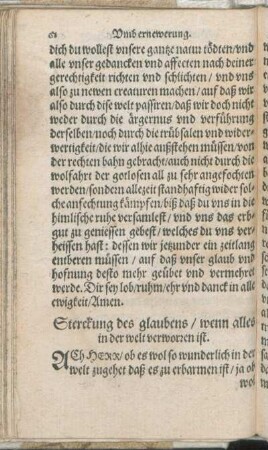 Vmb ernewerung.
dich du wollest vnsere gantze natur tödten/vnd
alle vnser gedancken vnd affecten nach deiner
gerechtigkeit richten vnd schlichten / vnd vns
also zu newen creaturen machen / auf daß wir
also durch dise welt passiren/daß wir doch nicht
weder durch die ärgernus vnd verführung
derselben/noch durch die trübsalen vnd wider-
wertigkeit/die wir alhie außstehen müssen/von
der rechten bahn gebracht/auch nicht durch die
wolfahrt der gotlosen all zu sehr angefochten
werden/sondern allezeit standhaftig wider sol-
che anfechtung kämpfen/biß daß du vns in die
himlische ruhe versamlest / vnd vns das erb-
gut zu geniessen gebest/welches du vns ver-
heissen hast: dessen wir jetzunder ein zeitlang
entberen müssen / auf daß vnser glaub vnd
hofnung desto mehr geübet vnd vermehret
werde. Dir sey lob/ruhm/ehr vnd danck in alle
ewigkeit/Amen.
Sterckung des glaubens / wenn alles
in der welt verworren ist.
ACh HERR/ ob es wol so wunderlich in der
welt zugehet daß es zu erbarmen ist / ja ob
wol